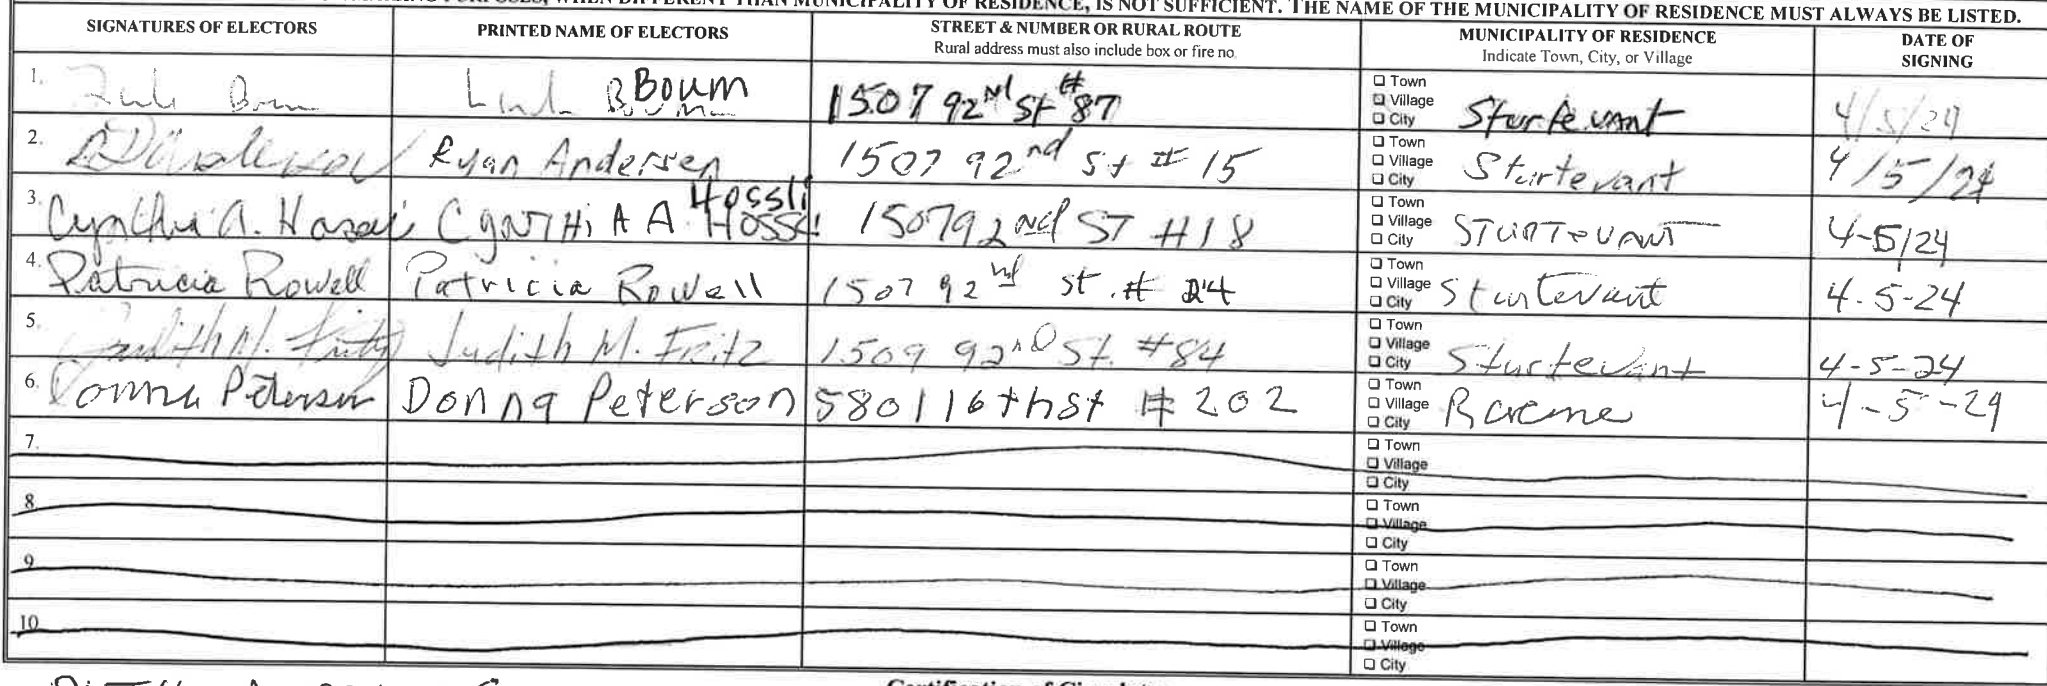 PURPOSES, WHEN DIFFERENT THAN MUNICIPALITY OF RESIDENCE, IS NOT SUFFICIENT. THE NAME OF THE MUNICIPALITY OF RESIDENCE MUST ALWAYS BE LISTED.
SIGNATURES OF ELECTORS PRINTED NAME OF ELECTORS STREET & NUMBER OR RURAL ROUTE Rural address must also include box or fire no. MUNICIPALITY OF RESIDENCE Indicate Town, City, or Village DATE OF SIGNING
1. BOUM 1507 92nd St #87 Town Village City Sturtevant 4/5/24
2. Ryan Andersen 1507 92nd St # 15 Town Village City Sturtevant 4/5/24
3. Cynthia A. CYNTHIA A Hossli 1507 92nd ST #18 Town Village City STURTEVANT 4-5/24
4. Patricia Rowell Patricia Rowell 1507 92nd St. # 24 Town Village City Sturtevant 4-5-24
5. Judith M. Fritz Judith M. Fritz 1509 92nd St. #84 Town Village City Sturtevant 4-5-24
6. Donna Peterson Donna Peterson 5801 16th st # 202 Town Village City Racine 4-5-24
7. Town Village City
8 Town Village City
9 Town Village City
10 Town Village City